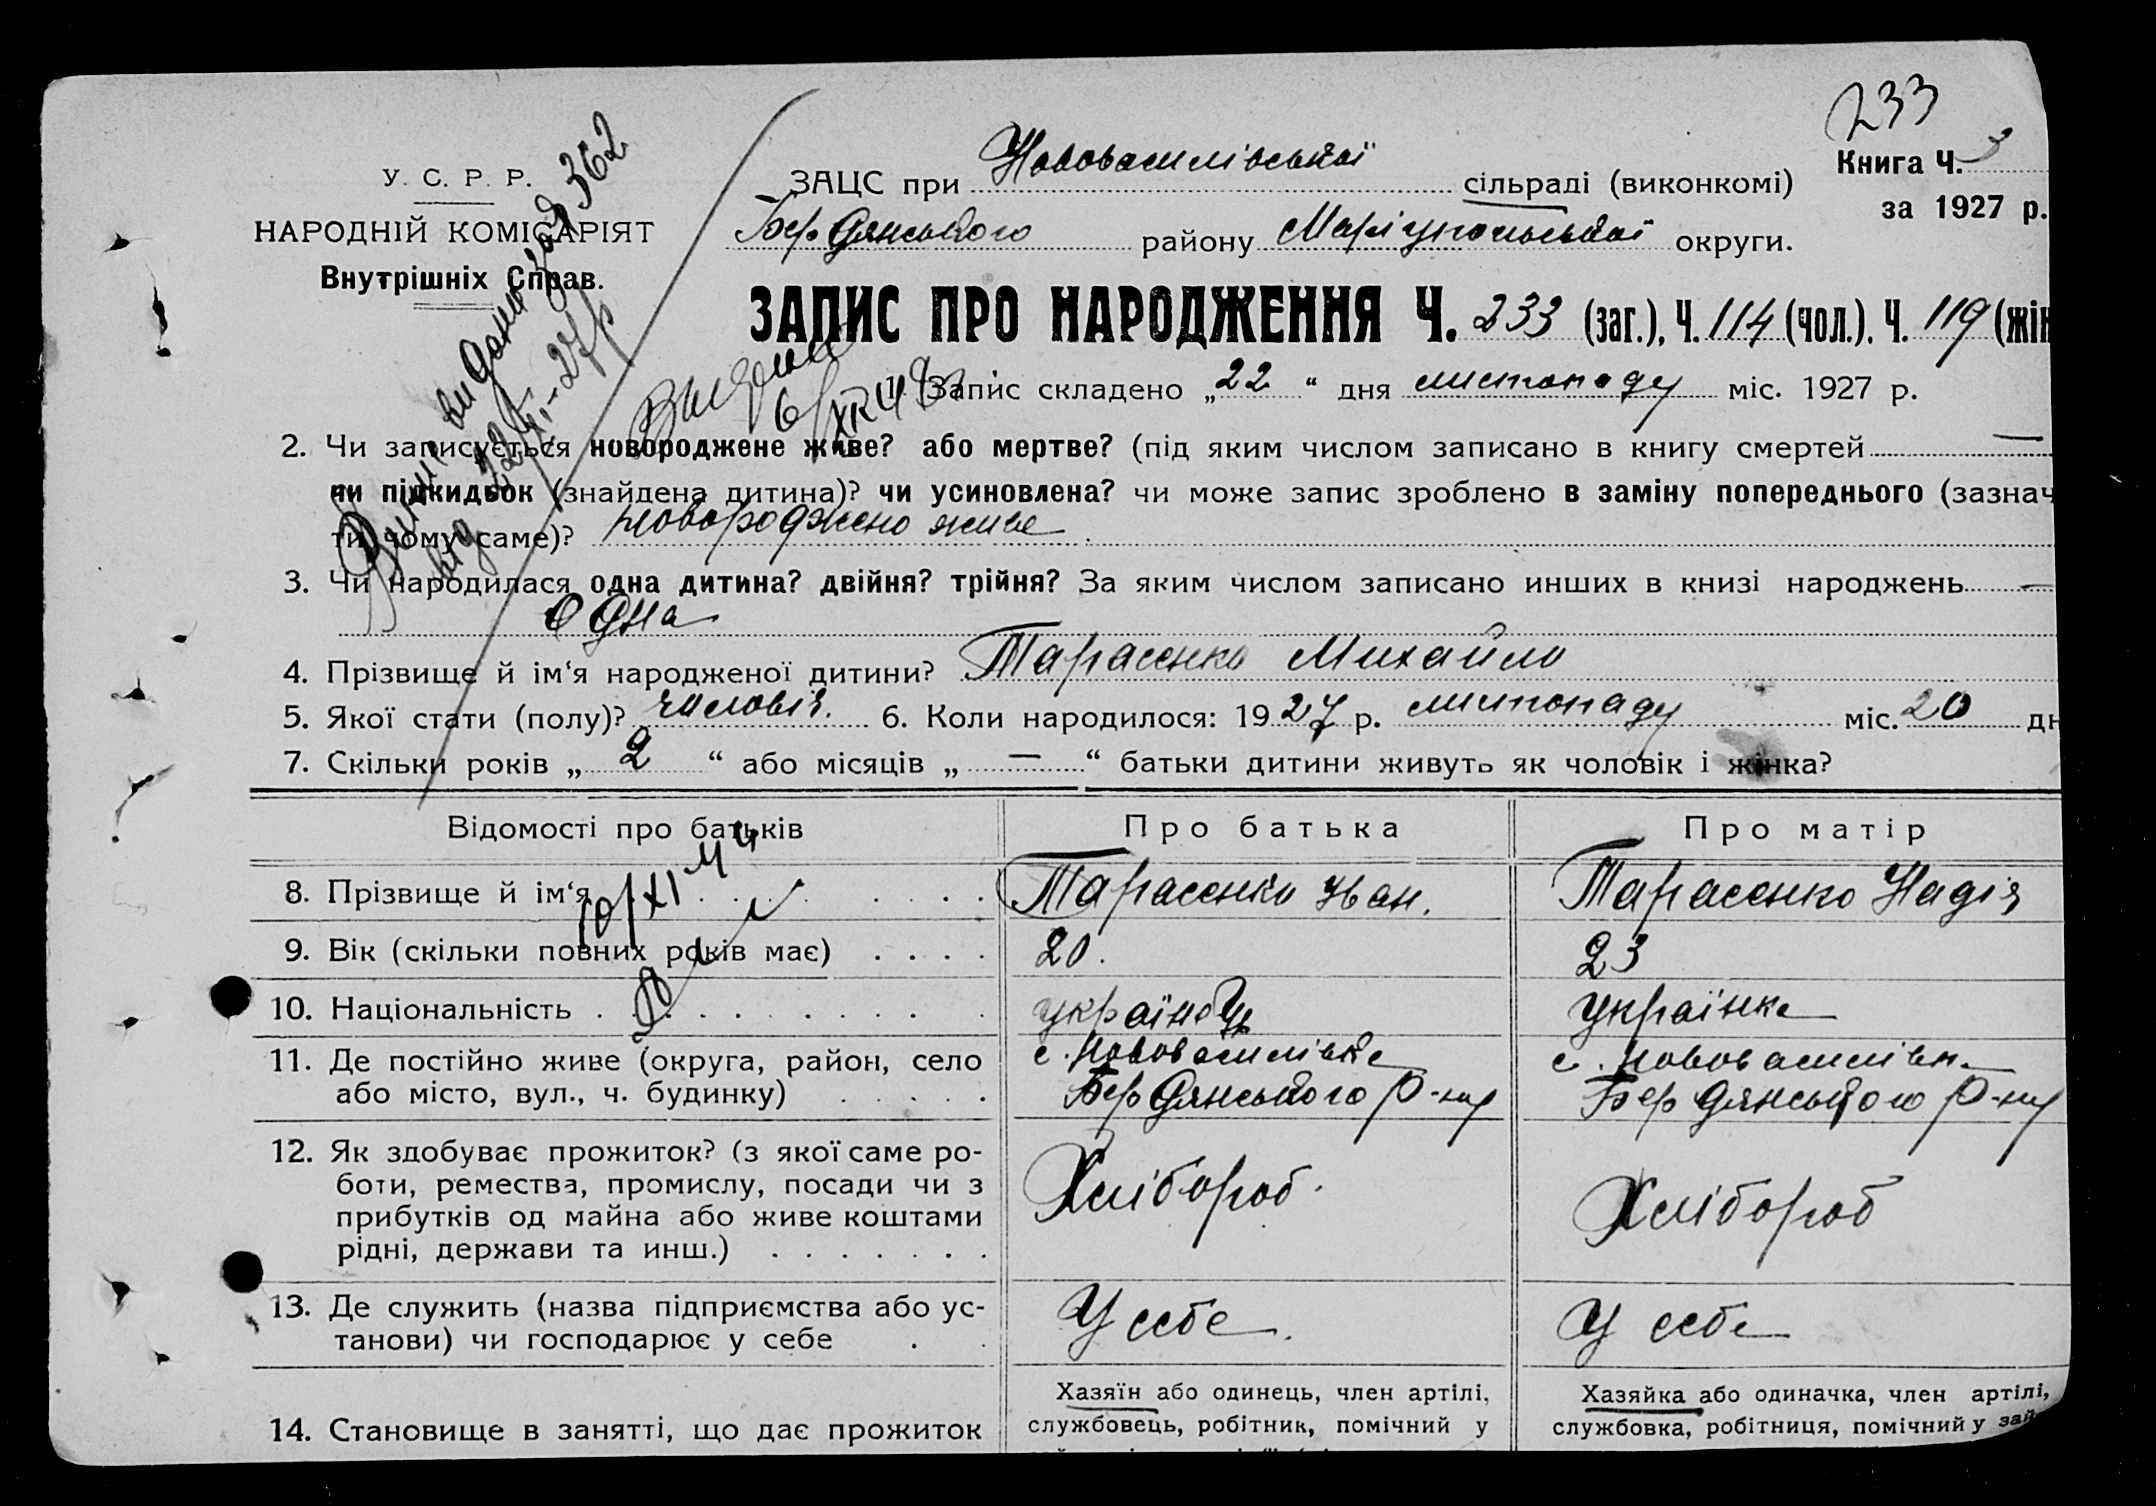 233
У. С. Р. Р.
НАРОДНІЙ КОМІСАРІЯТ
Внутрішніх Справ.
ЗАЦС при Нововасилівської сільраді (виконкомі)
Книга Ч. 3
за 1927 р.
Бердянського району Маріупольської округи.
ЗАПИС ПРО НАРОДЖЕННЯ Ч. 233 (заг.), Ч. 114 (чол.). Ч. 119 (жін
1. Запис складено „22“ дня листопаду міс. 1927 р.
2. Чи записується новороджене живе? або мертве? (під яким числом записано в книгу смертей —
чи підкидьок (знайдена дитина)? чи усиновлена? чи може запис зроблено в заміну попереднього (зазнач
ти чому саме)? новороджено живе
3. Чи народилася одна дитина? двійня? трійня? За яким числом записано инших в книзі народжень —
одна
4. Прізвище й ім‘я народженої дитини? Тарасенко Михайло
5. Якої стати (полу)? чиловік. 6. Коли народилося: 1927 р. листопаду міс. 20 дн
7. Скільки років „2“ або місяців „—“ батьки дитини живуть як чоловік і жінка?
видани 362
22/XI-27 р
Відомості про батьків
Про батька
Про матір
8. Прізвище й ім‘я
Тарасенко Иван.
Тарасенко Надія
9. Вік (скільки повних років має)
20.
23
10. Національність
українець
українка
11. Де постійно живе (округа, район, село
або місто, вул., ч. будинку)
с. Нововасилівка
Бердянського р-ну
с. Нововасилівк
Бердянського р-ну
12. Як здобуває прожиток? (з якої саме ро-
боти, ремества, промислу, посади чи з
прибутків од майна або живе коштами
рідні, держави та инш.)
Хлібороб.
Хлібороб
13. Де служить (назва підприємства або ус-
танови) чи господарює у себе
У себе.
У себе
14. Становище в занятті, що дає прожиток
Хазяїн або одинець, член артілі,
службовець, робітник, помічний у
Хазяйка або одиначка, член артілі,
службовка, робітниця, помічний у зай